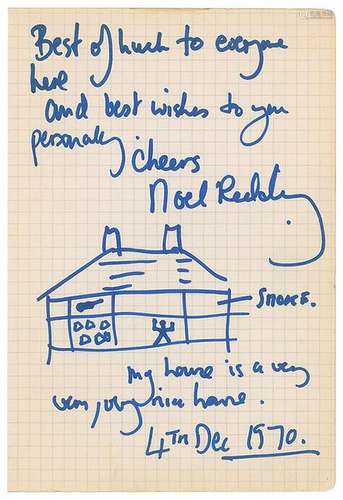 Best of luck to everyone
here
and best wishes to you
personally.
Cheers
Noel Redding
SMOKE.
my house is a very
very, very nice house.
4TH Dec 1970.